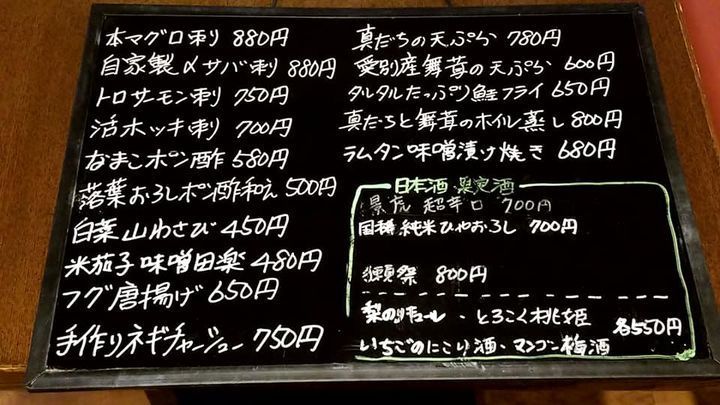 本マグロ刺り 880円
自家製〆サバ刺り 880円
トロサーモン刺 750円
活ホッキ刺り 700円
なまこポン酢 580円
落葉おろしポン酢和え 500円
白菜山わさび 450円
米茄子味噌田楽 480円
フグ唐揚げ 650円
手作りネギチャーシュー 750円
真だちの天ぷら 780円
愛別産舞茸の天ぷら 600円
タルタルたっぷり鮭フライ 650円
真だちと舞茸のホイル蒸し 800円
ラムタン味噌漬け焼き 680円
日本酒・果実酒
超辛口 700円
国稀 純米ひやおろし 700円
獺祭 800円
梨のリキュール・とろこく桃姫
各550円
いちごのにごり酒・マンゴー梅酒